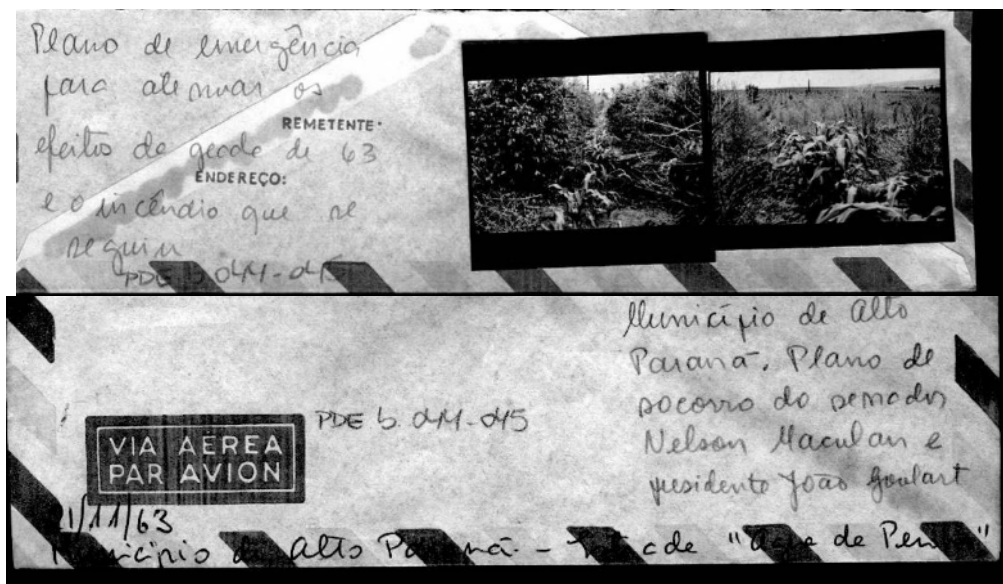 Plano de emergência
para atenuar os
efeitos da geada de 63
e o incêndio que se
seguiu
REMETENTE
ENDEREÇO:
PDE b 041-045
Município de Alto
Paraná. Plano de
socorro do senador
Nelson Maculan e
presidente João Goulart
PDE b. 041-045
VIA AEREA
PAR AVION
/11/63
Município de Alto Paraná -